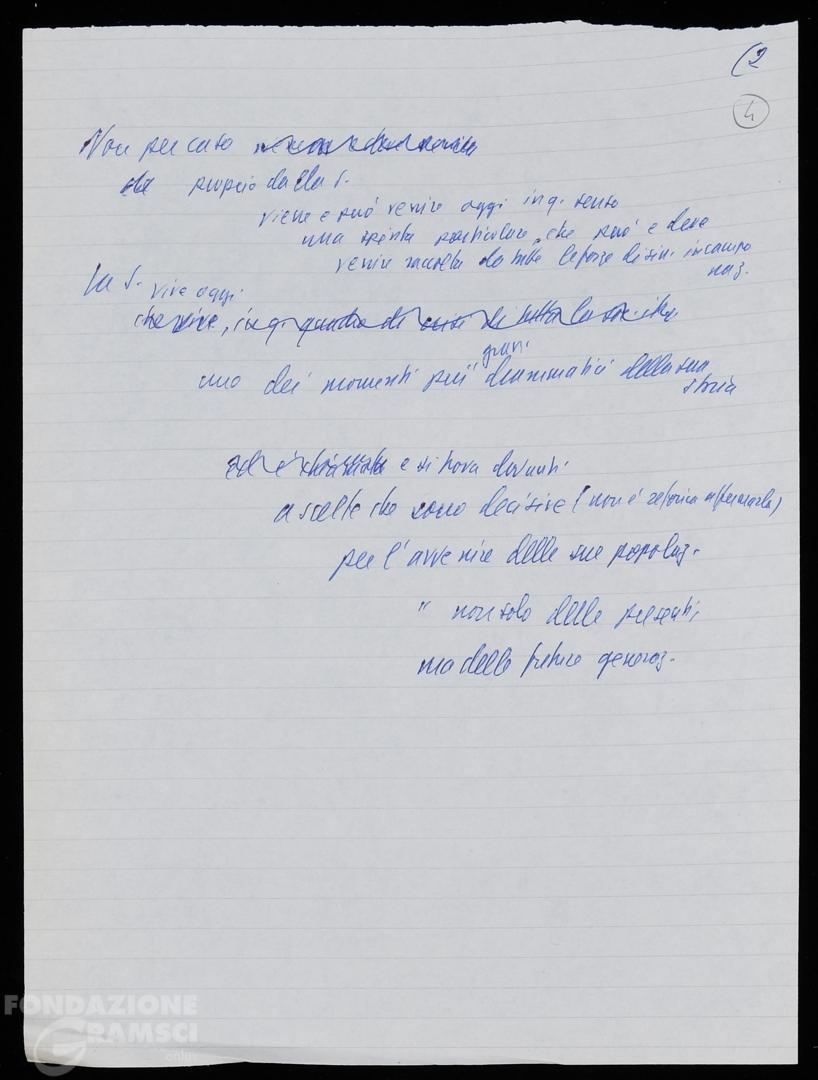 (2
4
Non per caso
proprio dalla S.
viene e può venire oggi in q. senso
una spinta particolare che può e deve
venire raccolta da tutte le forze di sin. in campo
naz.
La S. vive oggi
che vive, in q. quadro di crisi di tutta la società,
gravi
uno dei momenti più drammatici della sua
storia
ed è chiamata e si trova davanti
a scelte che sono decisive (non è retorica affermarlo)
per l'avvenire delle sue popolaz.
" non solo delle presenti,
ma delle future generaz.
FONDAZIONE
GRAMSCI
onlus